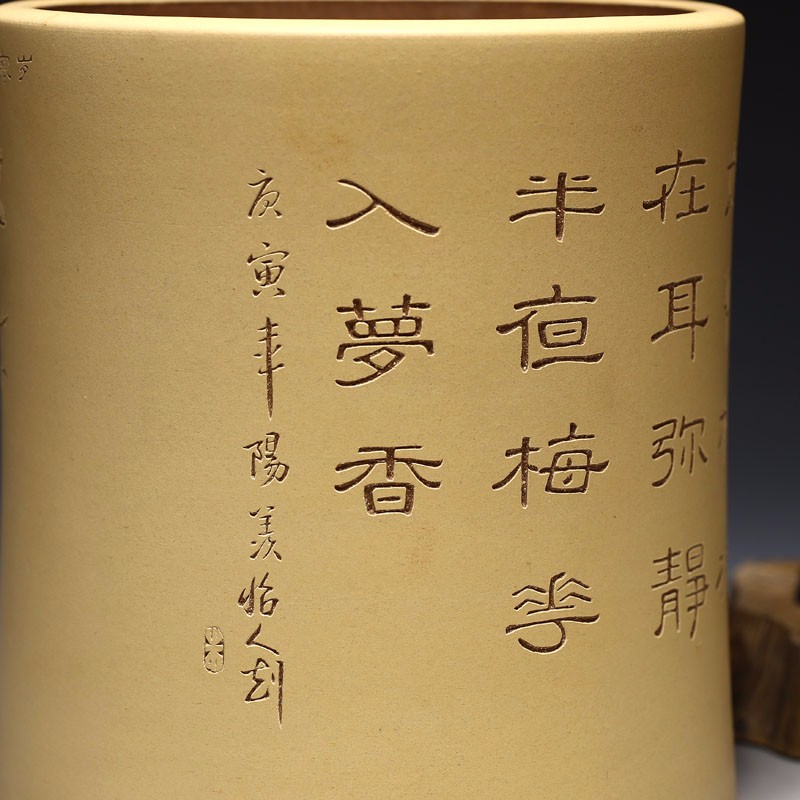 在耳弥靜
半夜梅花
入夢香
庚寅年陽羨怡人刻